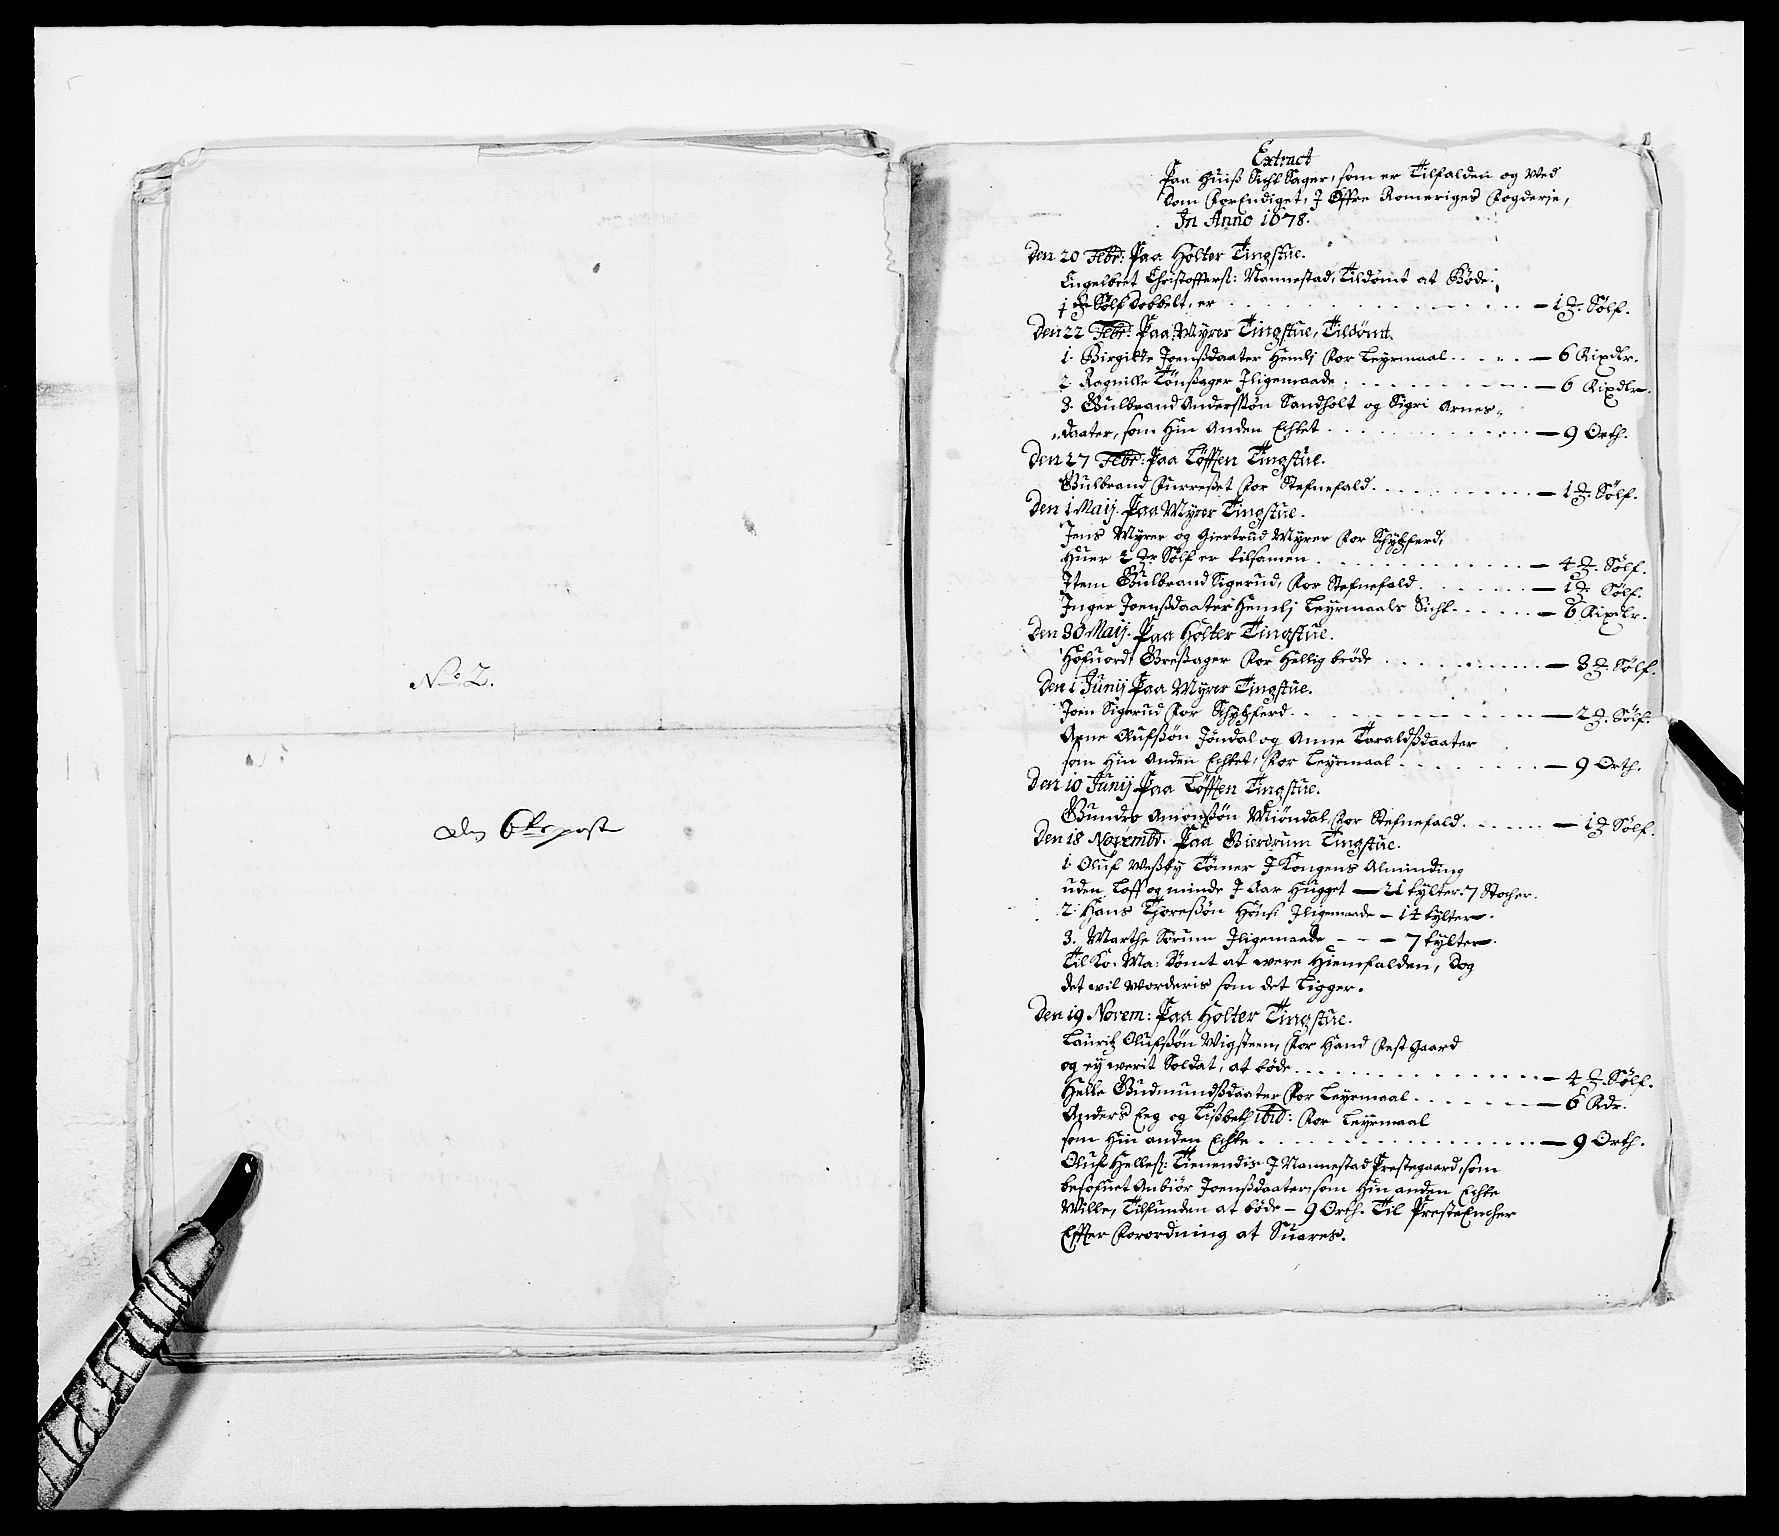 No. 2.
den 6te post
Extract
Paa Huiß Sicht Sager, som er Tilfalden og Ved
Dom ForEndiget, J Øffre Romeriges Fogderie,
In Anno 1678.
Den 20 Febr: Paa Holter Tingstue.
Engelbret Christoffersß: Nannestad, Tildømt at Bøde
Sølf Dobbelt, er - 1 Sølf.
Den 22 Febr: Paa Myrer Tingstue, Tildømt
1. Birgitte Joensßdaater Hemlj For Leyrmaal - 6 Rixdlr.
2. Ragnille Tønßager Jligemaade - 6 Rixdlr.
3. Gulbrand Anderssøn Sandholt og Sigri Arnes-
daater, som Hin Anden Echtet - 9 Orth.
Den 27 Febr: Paa Løfften Tingstue.
Gulbrand Furreßet For Stefnefald - 1 Sølf.
Den 1 Maij. Paa Myrer Tingstue.
Jens Myrer og Giertrud Myrer For Schytzferd,
Huer 2 Sølf er tilsamen - 4 Sølf.
Jtem Gulbrand Sigerud, For Stefnefald - 1 Sølf.
Inger Joensßdaater Hemlj Leyrmaals Sicht - 6 Rixdlr.
Den 30 Maij. Paa Holter Tingstue.
Hofuordt Greßager For Hellig brøde - 3 Sølf.
Den 1 Junij Paa Myrer Tingstue.
Joen Sigerud For Schytzferd - 2 Sølf.
Arne Olufßøn Jøndal og Anne Taraldßdaater
som Hin Anden Echtet, For Leyrmaal - 9 Orth.
Den 10 Junij Paa Løfften Tingstue.
Gunder Amonßøn Miøndal For Stefnefald - 1 Sølf.
Den 18 Novembr. Paa Gierdrum Tingstue.
1. Oluf Weßby Tømer J Kongens Alminding
uden Loff og minde J Aar Hugget - 21 tylter. 7 Stocher.
2. Hans Thoresßøn Hønsi Jligemaade - 14 tylter.
3. Marthe Sørum Jligemaade - - - 7 tylter.
Til Ko. Ma: Dømt at were Hiemfalden, Dog
det wil Worderis som det Ligger.
Den 19 Novem: Paa Holter Tingstue.
Lauritz Olufsßøn Wigsteen, For Hand Fest Gaard
og ey werit Soldat, at bøde - 4 Sølf.
Helle Gudmundßdaater For Leyrmaal - 6 Rdr.
Anders Eeg og Lißbeth ibid: For Leyrmaal
som Hin anden Echte - 9 Orth.
Oluf Hellesß: Tienendis J Nannestad Prestegaard, som
besofuet Anbiør Joensßdaater, som Hin anden Echte
Wille, Tilfunden at bøde - 9 Orth. Til PresteEncher
Effter Forordning at Suares.